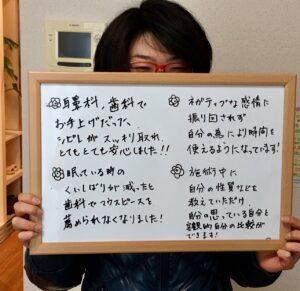 耳鼻科、歯科で
お手上げだった、
シビレがスッキリ取れ、
とてもとても安心しました!!
眠っている時の
くいしばりが減ったと
歯科でマウスピースを
薦められなくなりました!
ネガティブな感情に
振り回されず
自分の為により時間を
使えるようになっています!
施術中に
自分の性質などを
教えていただけ、
自分の思っている自分と
客観的自分の比較が
できます!